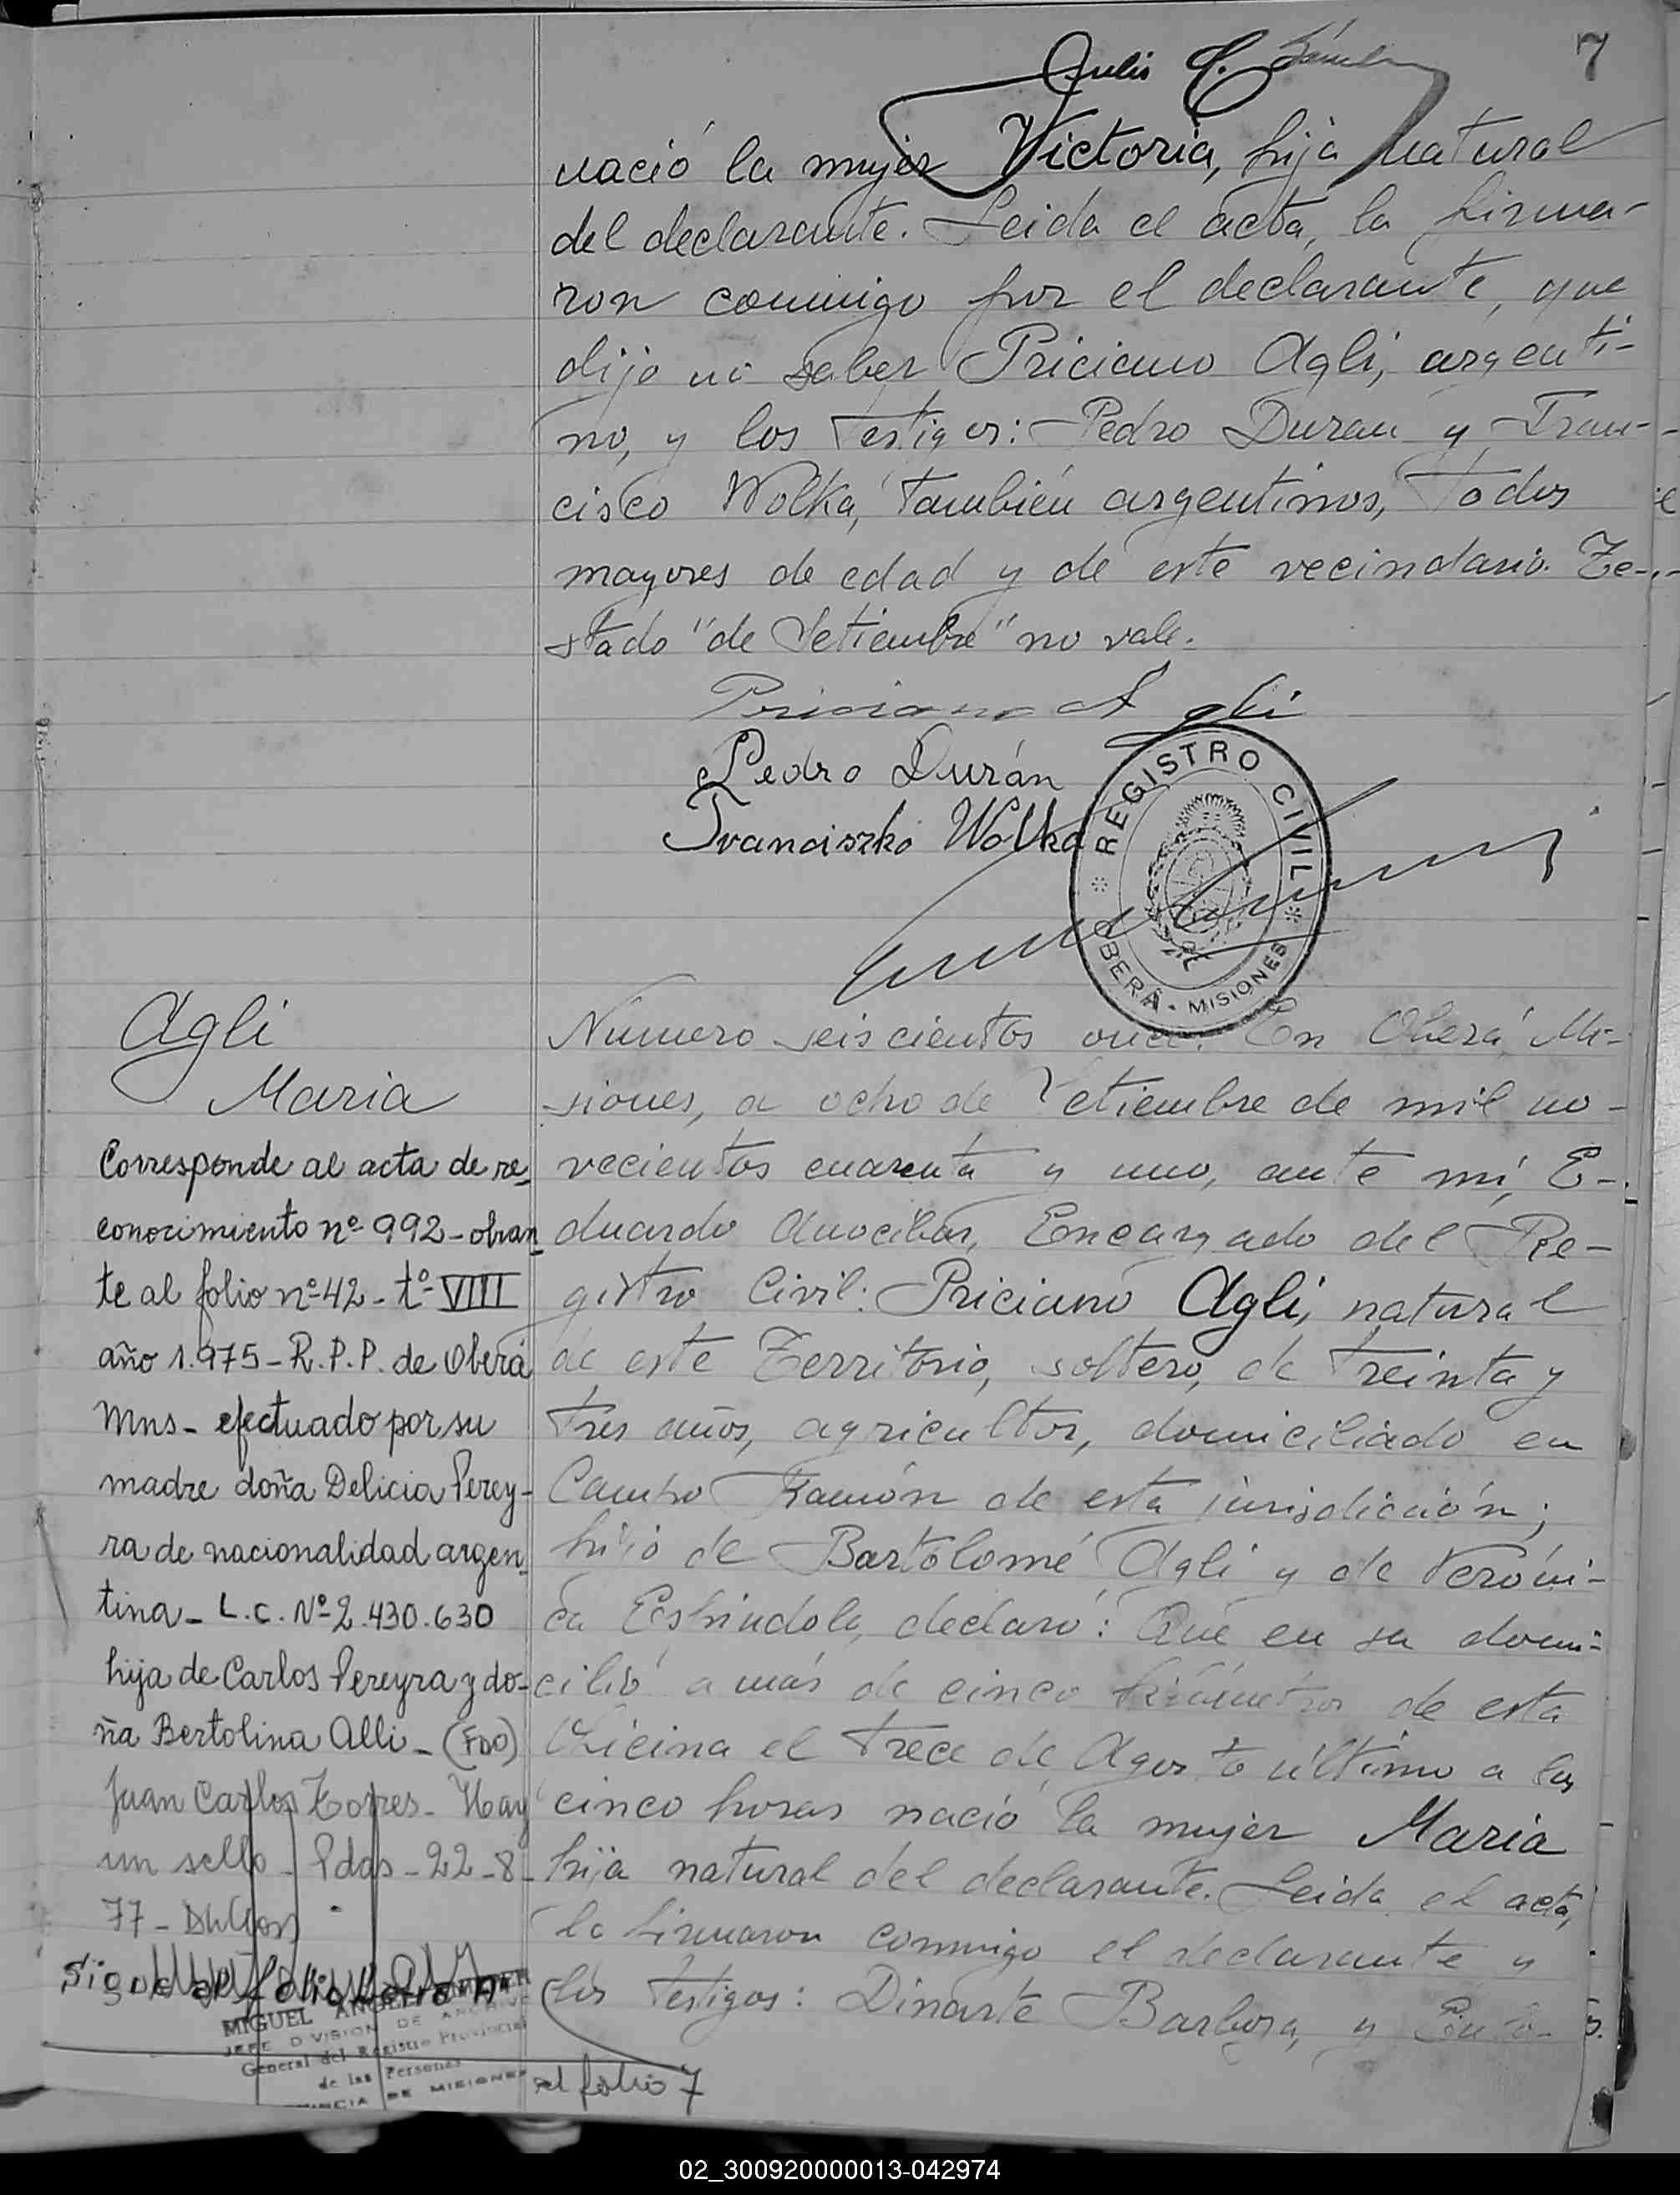 7
Julio C.
nació la mujer Victoria, hija natural
del declarante. Leida el acta, la firma-
ron conmigo por el declarante, que
dijo no saber Priciano Agli, argenti-
no, y los testigos: Pedro Duran y Fran-
cisco Wolka, también argentinos, todos
mayores de edad y de este vecindario. Te-
stado "de Setiembre" no vale.
Priciano Agli
Pedro Durán
Franciszko Wolka
REGISTRO CIVIL
OBERÁ - MISIONES
Agli
Maria
Corresponde al acta de re-
conocimiento nº 992 - obran-
te al folio nº 42 - tº VIII
año 1.975 - R.P.P. de Oberá
Mns - efectuado por su
madre doña Delicia Perey-
ra de nacionalidad argen-
tina - L.C. Nº 2.430.630
hija de Carlos Pereyra y do-
ña Bertolina Alli - (FDO)
Juan Carlos Torres - Hay
un sello - Pdas - 22-8-
77 -
Sigue al folio letra "A"
MIGUEL ANGEL
JEFE DIVISION DE
General del Registro Provincial
de las Personas
DE MISIONES
Numero seiscientos once. En Oberá, Mi-
siones, a ocho de Setiembre de mil no-
vecientos cuarenta y uno, ante mí, E-
duardo Anocibar, Encargado del Re-
gistro Civil: Priciano Agli, natural
de este Territorio, soltero, de treinta y
tres años, agricultor, domiciliado en
Campo Ramón de esta jurisdicción;
hijo de Bartolomé Agli y de Veróni-
ca Espindola, declaró: Que en su domi-
cilio a más de cinco kilómetros de esta
Oficina el trece de Agosto último a las
cinco horas nació la mujer Maria
hija natural del declarante. Leida el acta,
la firmaron conmigo el declarante y
los testigos: Dinarte Barboza, y
al folio 7
02_300920000013-042974